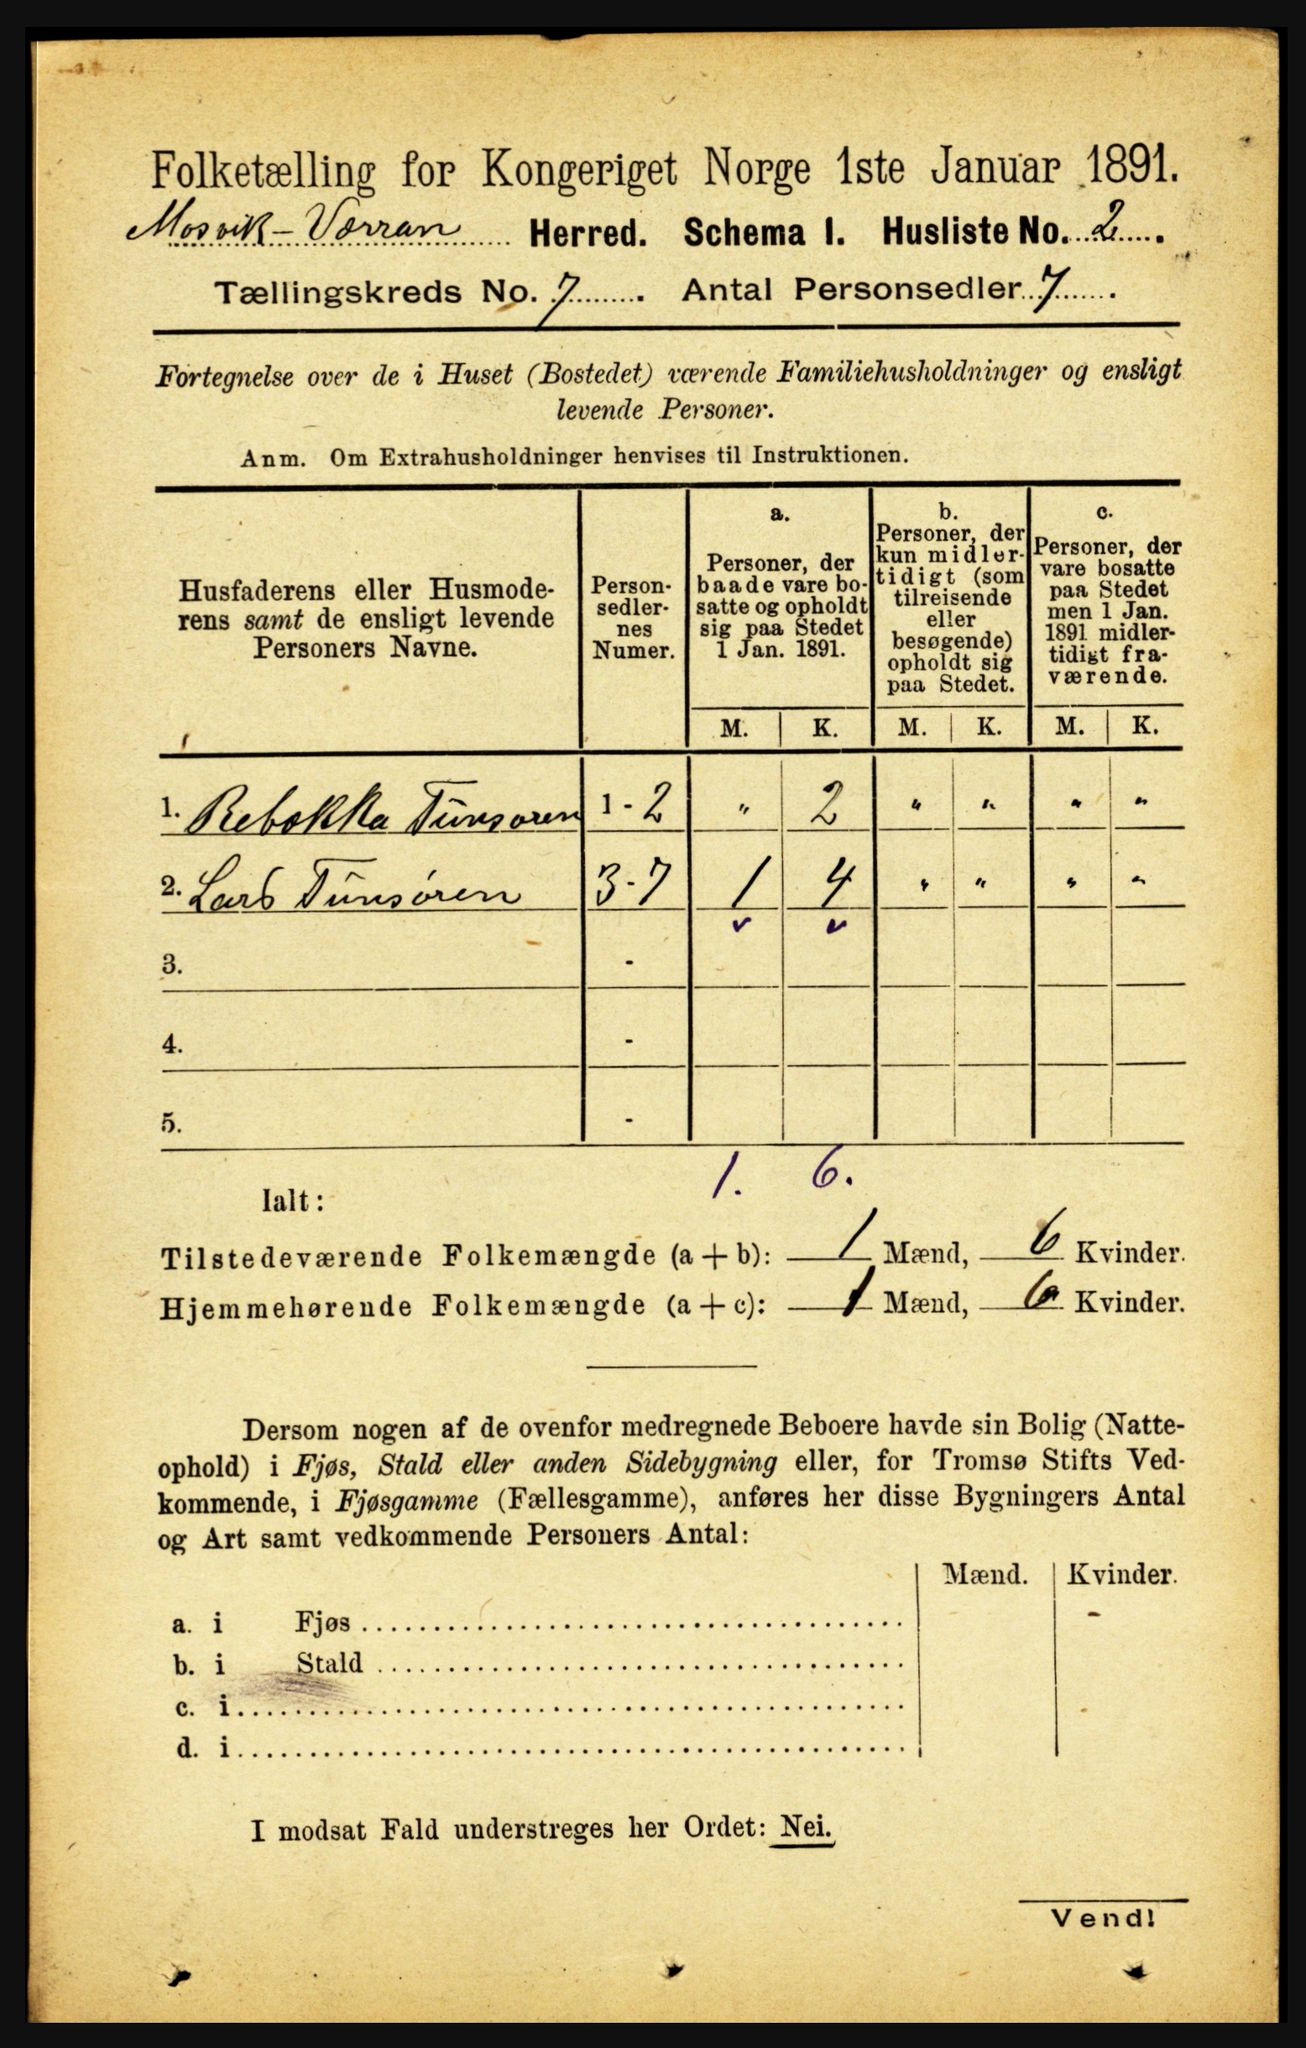 Folketælling for Kongeriget Norge 1ste Januar 1891.
Mosvik - Værran Herred. Schema 1. Husliste No. 2.
Tællingskreds No. 7. Antal Personsedler 7.
Fortegnelse over de i Huset (Bostedet) værende Familiehusholdninger og ensligt
levende Personer.
Anm. Om Extrahusholdninger henvises til Instruktionen.
Husfaderens eller Husmode-
rens samt de ensligt levende
Personers Navne.
Person-
sedler-
nes
Numer.
a.
Personer, der
baade vare bo-
satte og opholdt
sig paa Stedet
1 Jan. 1891.
b.
Personer, der
kun midler-
tidigt (som
tilreisende
eller
besøgende)
opholdt sig
paa Stedet.
c.
Personer, der
vare bosatte
paa Stedet
men 1 Jan.
1891 midler-
tidigt fra-
værende.
M. K. M. K. M. K.
1. Rebekka Tunsøren 1 - 2 " 2 " " " "
2. Lars Tunsøren 3 - 7 1 4 " " " "
3. -
4. -
5. -
1. 6.
Ialt:
Tilstedeværende Folkemængde (a + b): 1 Mænd, 6 Kvinder.
Hjemmehørende Folkemængde (a + c): 1 Mænd, 6 Kvinder.
Dersom nogen af de ovenfor medregnede Beboere havde sin Bolig (Natte-
ophold) i Fjøs, Stald eller anden Sidebygning eller, for Tromsø Stifts Ved-
kommende, i Fjøsgamme (Fællesgamme), anføres her disse Bygningers Antal
og Art samt vedkommende Personers Antal:
Mænd. Kvinder.
a. i Fjøs
b. i Stald
c. i
d. i
I modsat Fald understreges her Ordet: Nei.
Vend!